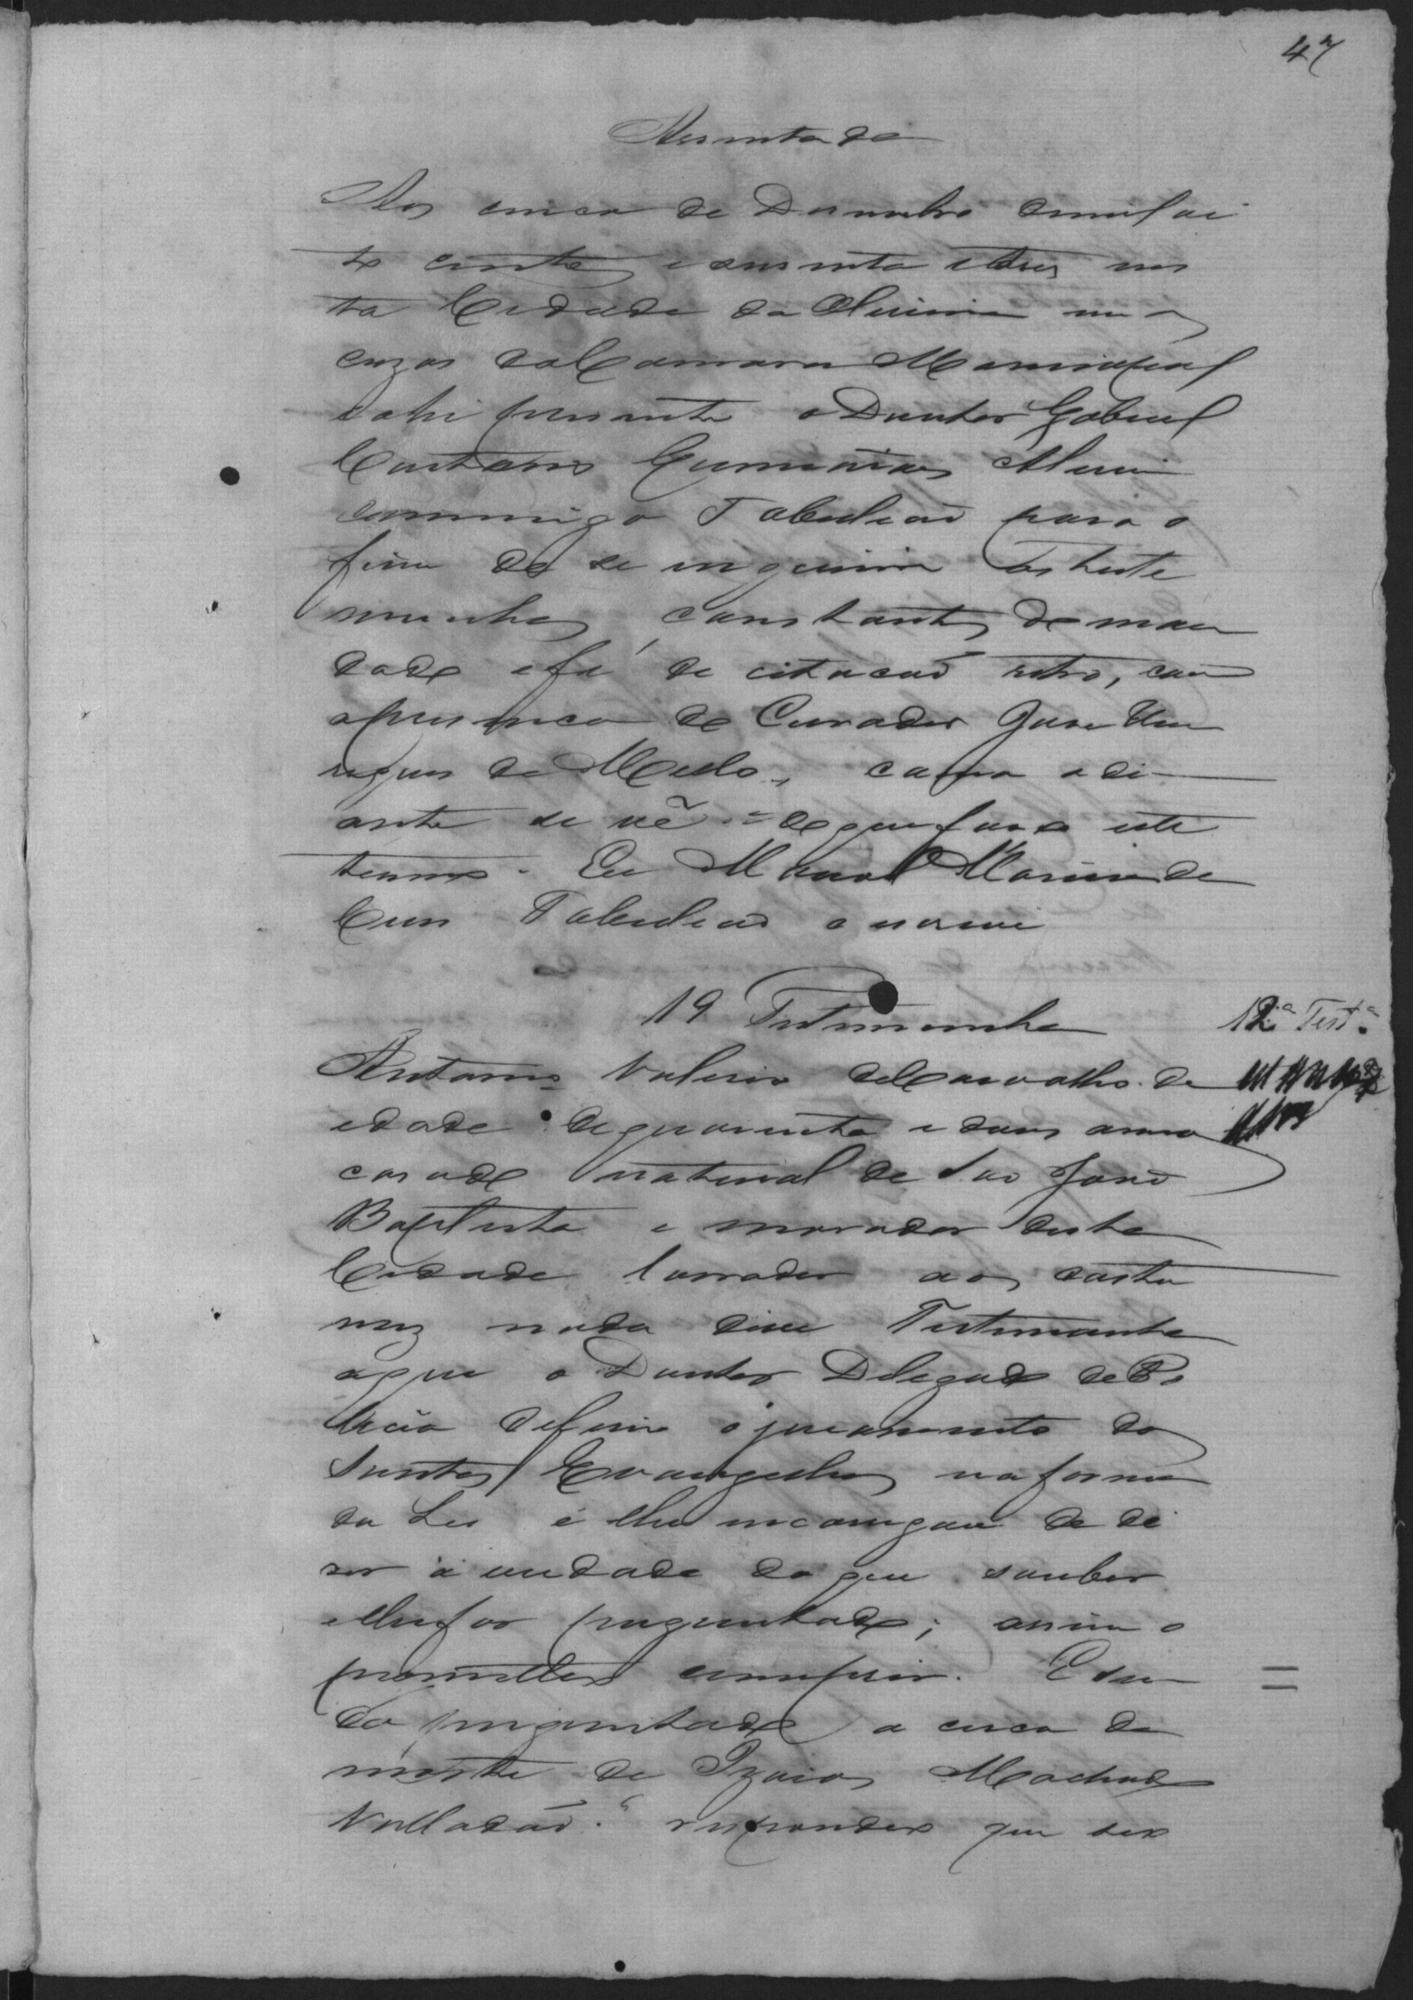 47
Assentada
Aos cinco de Dezembro demiloi
to centos esessenta etres nes
ta Cidade da Oliveira nas
cazas daCamara Municipal
eahi presente o Doutor Gabriel
Caetano Guimarães
commigo Tabeliaõ para o
fim de se inquirir as teste
munhas constantes do man
dado efé de citacaõ retro, com
apresenca do Curador José
rigues de Mello, como adi
ante se vê = do que faço este
termo. Eu Manoel
Tabeliaõ o escrevi
1ª Testemunha
12ª Testª
Antonio Valerio deCarvalho de
idade dequarenta e dous annos
casado natural de Saõ Joaõ
Baptista e morador desta
Cidade lavrador aos costu
mes nada disse Testemunha
aque o Doutor Delegado dePo
licia deferio o juramento dos
Santos Evangelhos naforma
da Lei e lhe encarregou de di
zer a verdade do que souber
elhefor preguntado; assim o
prometteo cumprir. Esen
do preguntado a cerca da
morte de Izaias Machado
Valladaõ. respondeo que